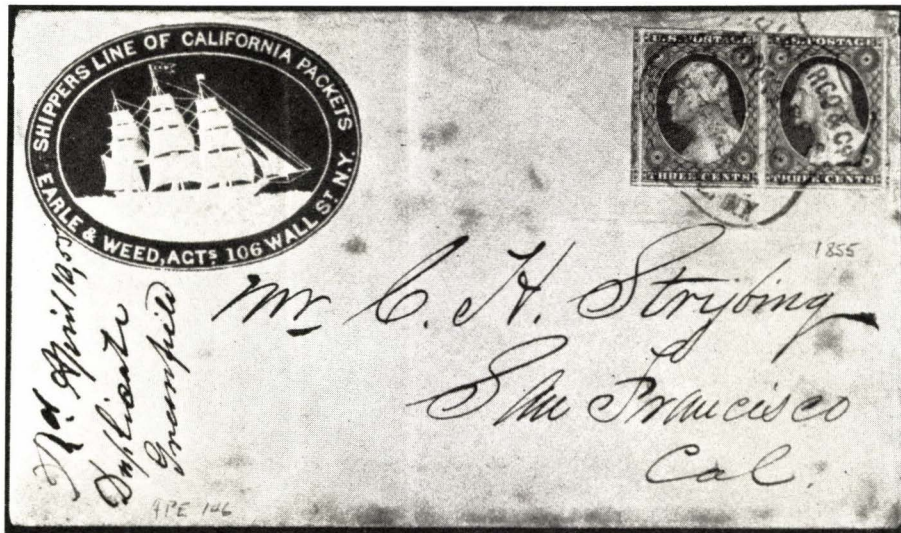 SHIPPERS LINE OF CALIFORNIA PACKETS
EARLE & WEED, AGTS 106 WALL ST. N.Y.
U.S. POSTAGE
THREE CENTS
U.S. POSTAGE
THREE CENTS
RGO & Co
N.Y.
1855
Mr C. H. Strybing
San Francisco
Cal.
April 10, 55
Duplicate
APE 146